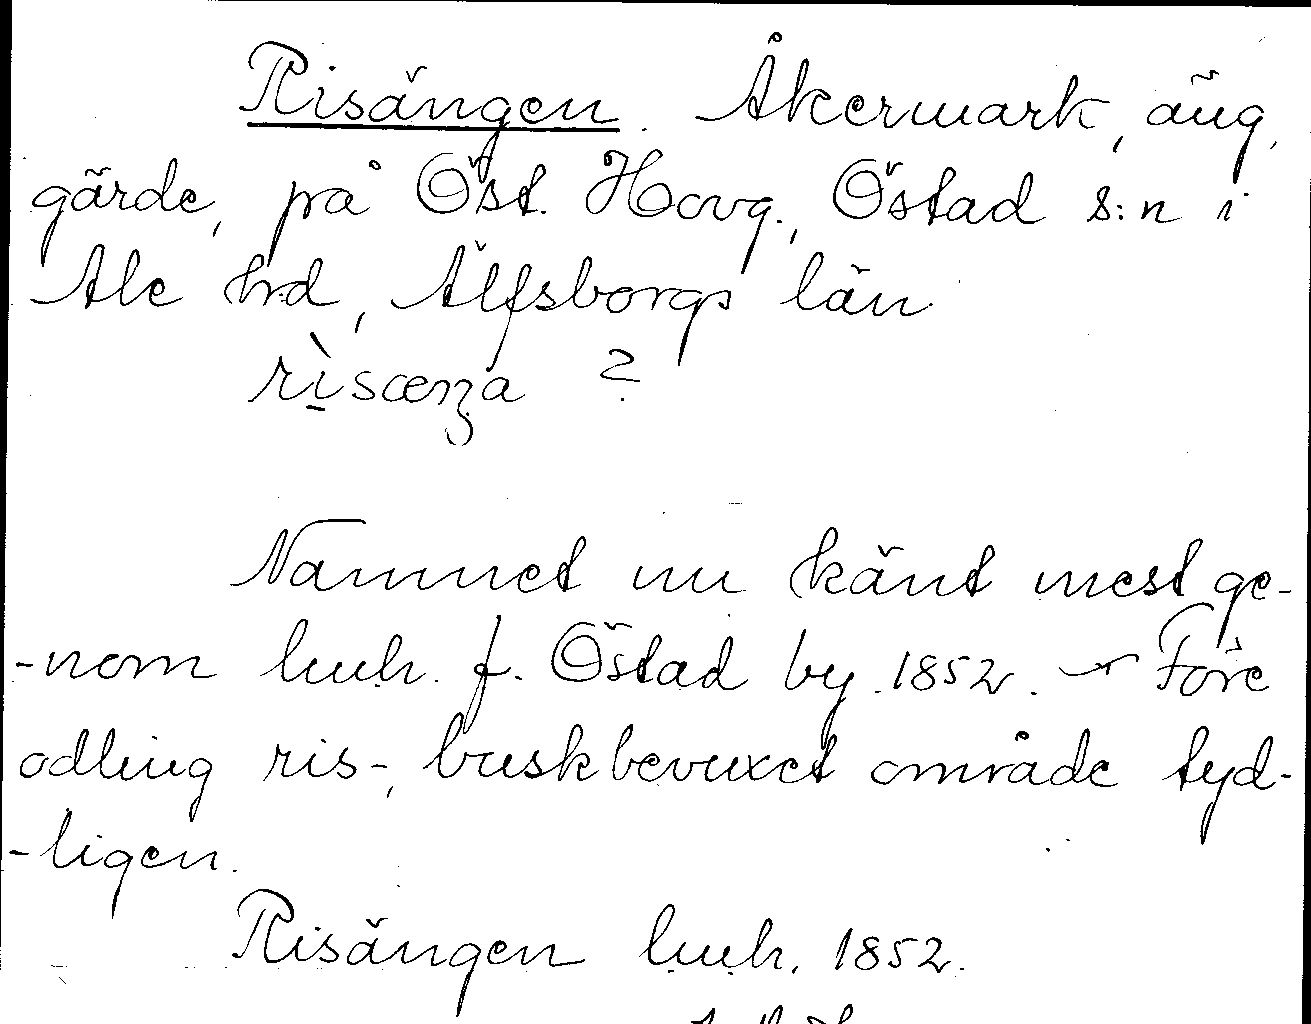 Risängen. Åkermark, äng,
gärde, på Öst. Hovg., Östad s:n i
Ale hd, Älfsborgs län
rìsænga ?
Namnet nu känt mest ge-
-nom luh. f. Östad by 1852. - Före
odling ris-, buskbevuxet område tyd-
-ligen.
Risängen luh. 1852.